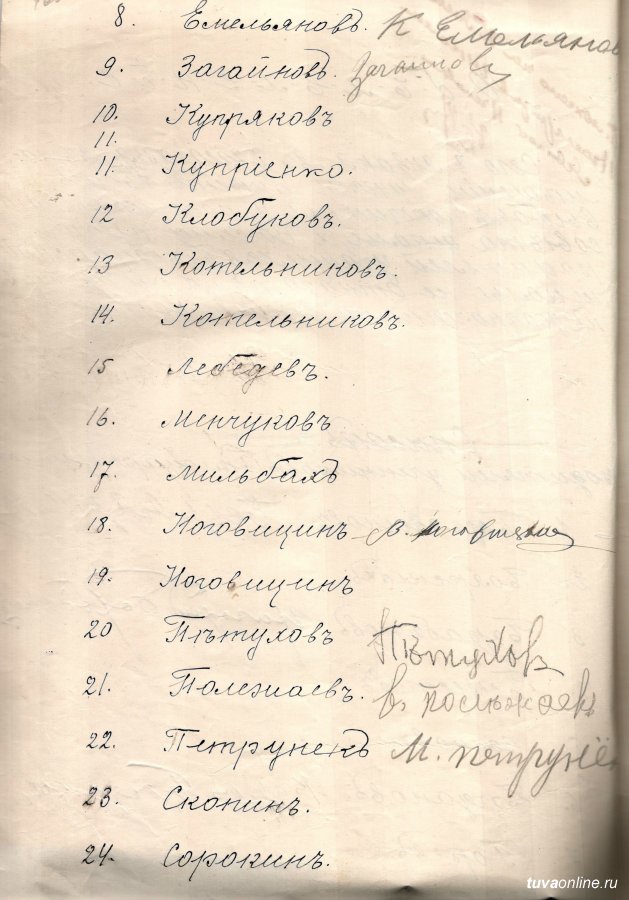 8. Емельяновъ. К Емельянов
9. Загайновъ. Загайновъ
10. Купряковъ
11.
11. Купріенко.
12 Клобуковъ.
13 Котельниковъ.
14. Котельниковъ.
15 Лебедевъ.
16. Менчуковъ
17. Мильбахъ
18. Ноговицинъ
19. Ноговицинъ
20 Пѣтуховъ Пѣтухов
21. Полежаевъ. В. Полежаевъ
22. Петрунекъ М. Петрунёк
23. Скопинъ.
24. Сорокинъ.
tuvaonline.ru